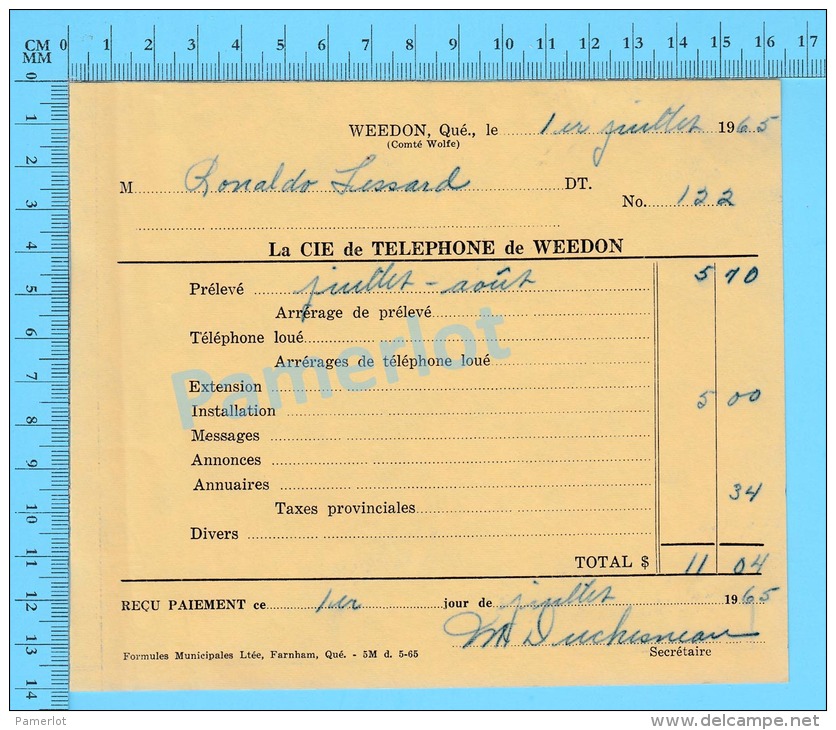 CM 0 1 2 3 4 5 6 7 8 9 10 11 12 13 14 15 16 17
MM
0 1 2 3 4 5 6 7 8 9 10 11 12 13 14
WEEDON, Qué., le 1er juillet 1965
(Comté Wolfe)
M Ronaldo Lessard DT.
No. 122
La CIE de TELEPHONE de WEEDON
Prélevé juillet - août 5 70
Arrérage de prélevé
Téléphone loué
Arrérages de téléphone loué
Extension
Installation 5 00
Messages
Annonces
Annuaires
34
Taxes provinciales
Divers
TOTAL $ 11 04
REÇU PAIEMENT ce 1er jour de juillet 1965
Duchesneau
Formules Municipales Ltée, Farnham, Qué. - 5M d. 5-65 Secrétaire
Pamerlot
Pamerlot
delcampe.net